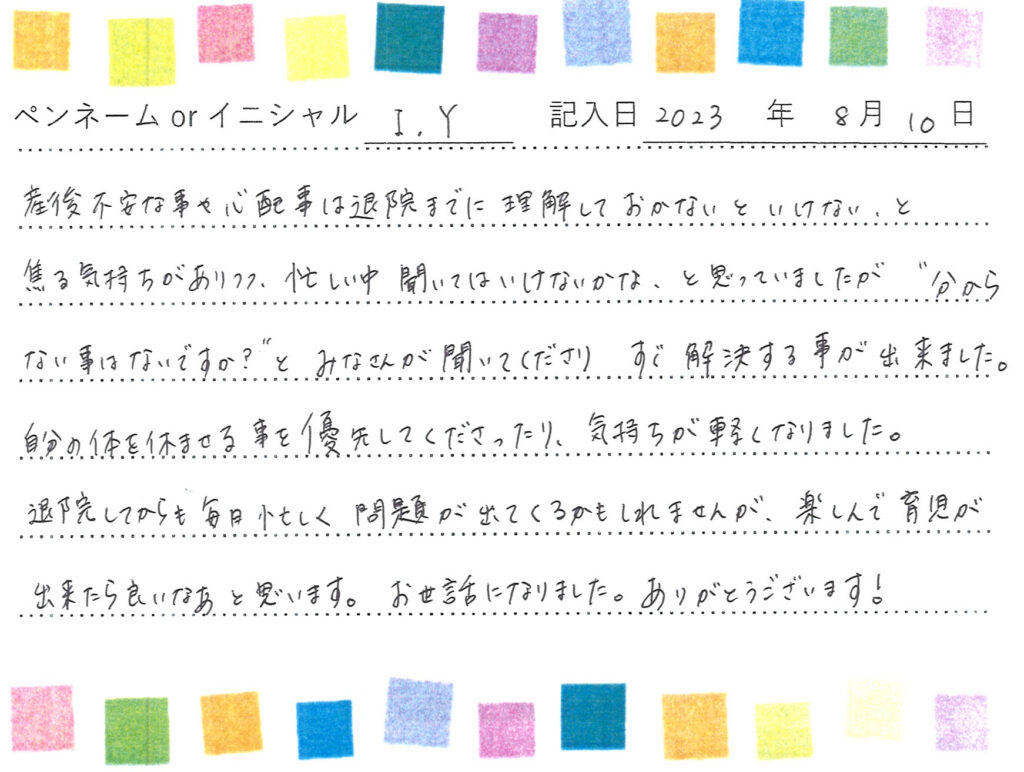 ペンネーム or イニシャル I.Y 記入日 2023 年 8月 10日
産後不安な事や心配事は退院までに理解しておかないといけない、と
焦る気持ちがありつつ、忙しい中聞いてはいけないかな、と思っていましたが "分から
ない事はないですか?"と みなさんが聞いてくださり すぐ解決する事が出来ました。
自分の体を休ませる事を優先してくださったり、気持ちが軽くなりました。
退院してからも毎日忙しく問題が出てくるかもしれませんが、楽しんで育児が
出来たら良いなあと思います。お世話になりました。ありがとうございます!